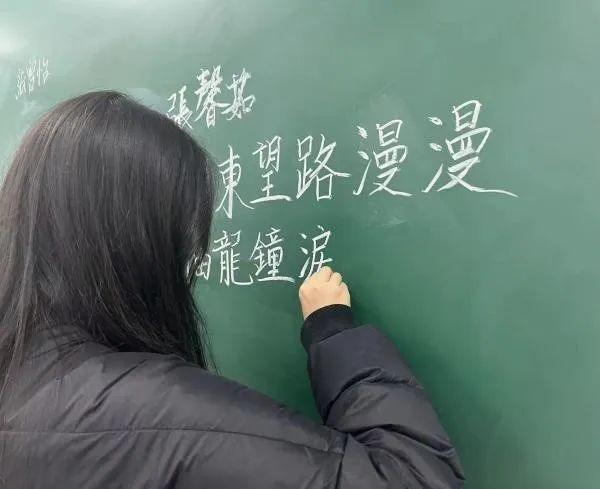 張馨茹
東望路漫漫
龍鐘淚